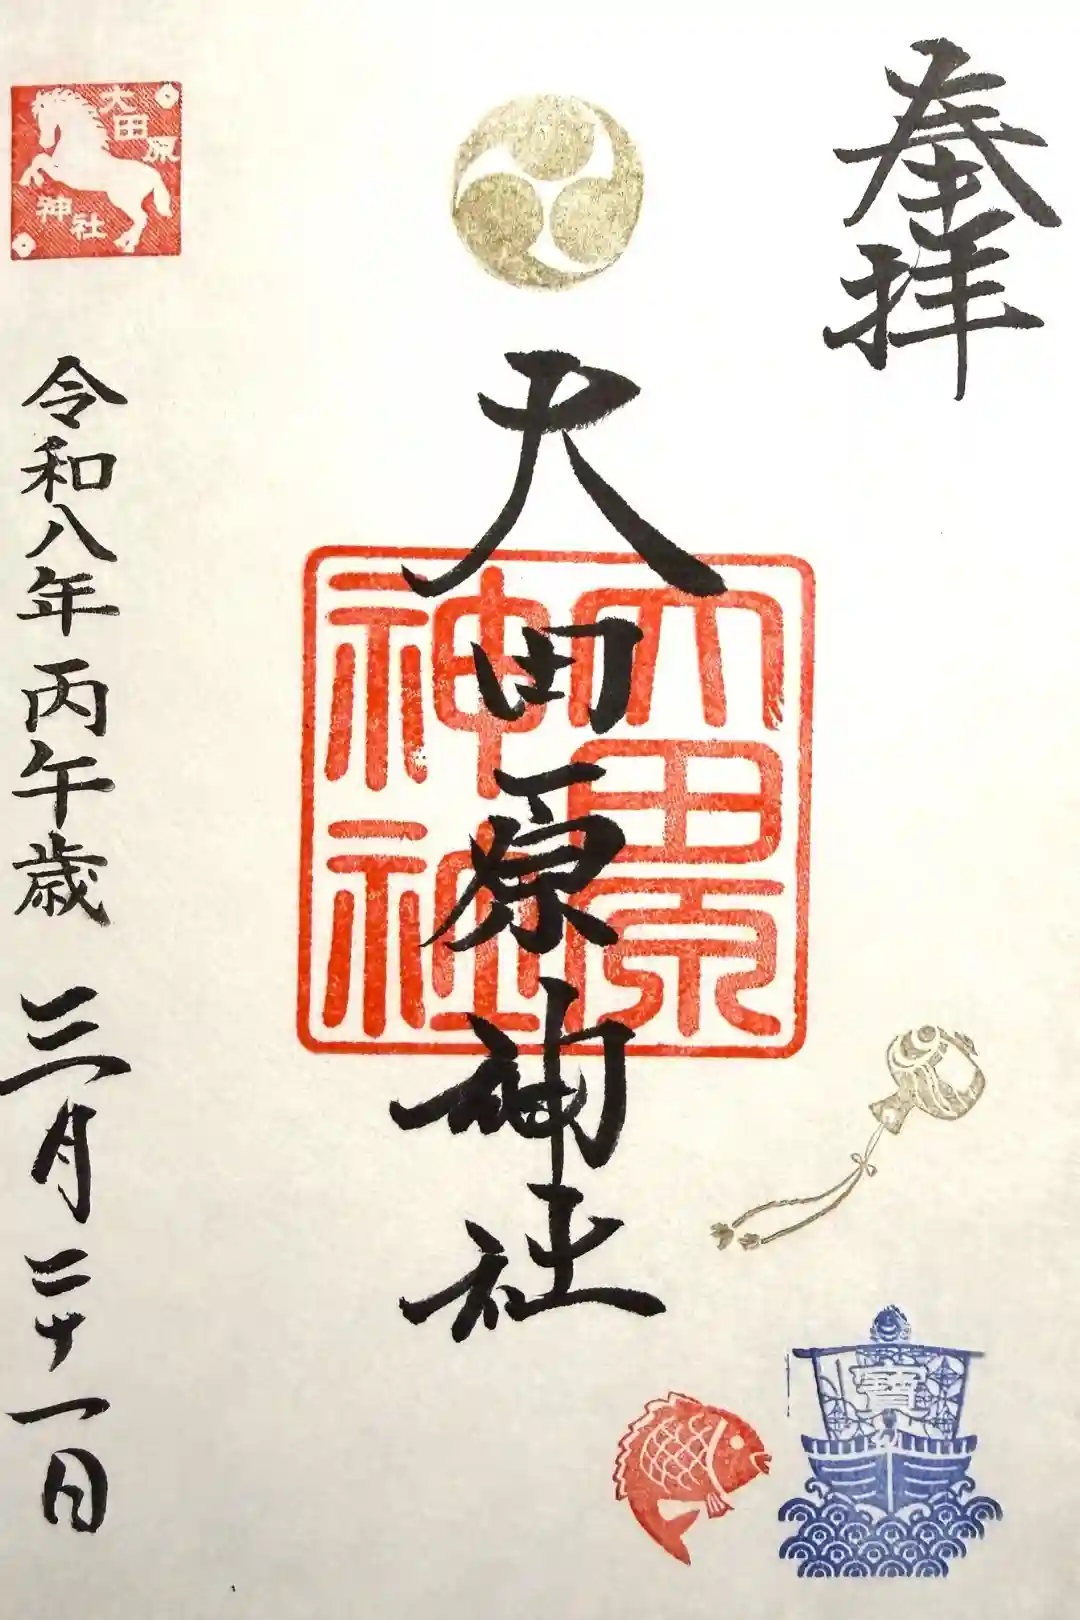 奉拝
大田原神社
大田原
神社
大田原
神社
令和八年丙午歳 三月二十一日
寶